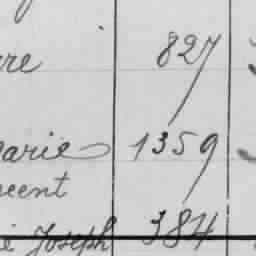 re 827
arie 1359
cent
ie Joseph 384